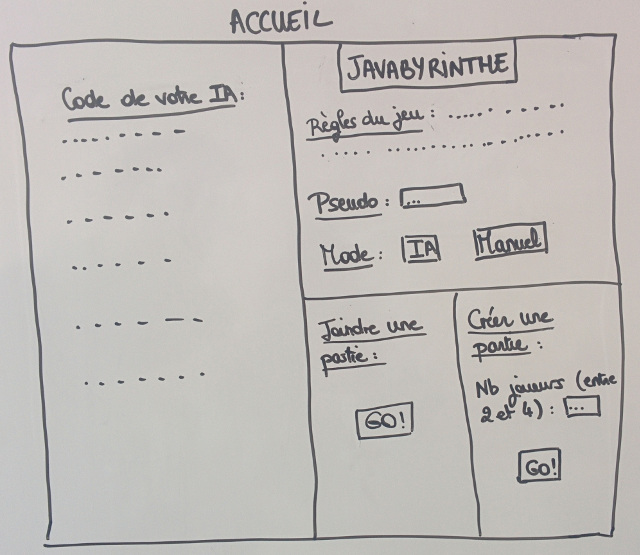 ACCUEIL
Code de votre IA:
JAVABYRINTHE
Règles du jeu :
Pseudo : ...
Mode : IA Manuel
Joindre une
partie :
GO!
Créer une
partie :
Nb joueurs (entre
2 et 4) : ...
GO!